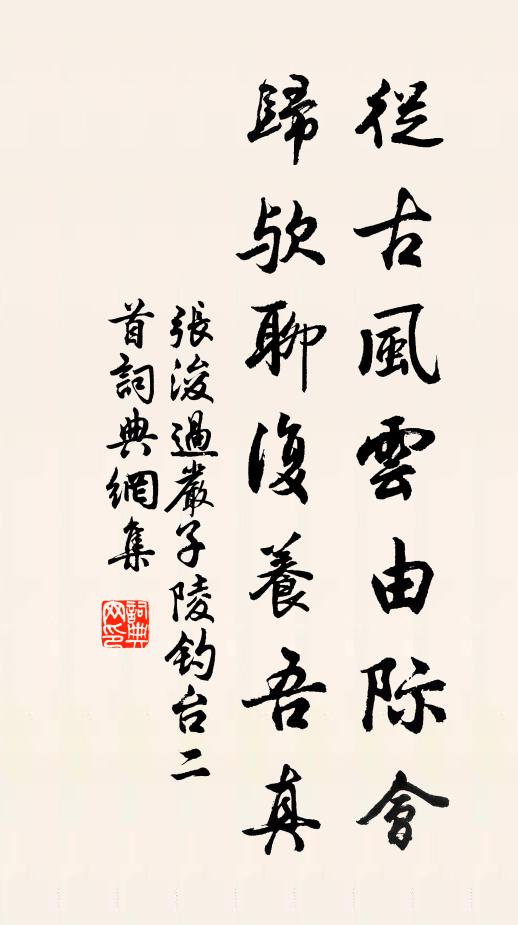 從古風雲由际會
歸欤聊復養吾真
張浚過嚴子陵钓台二
首詞典網集
詞典网印